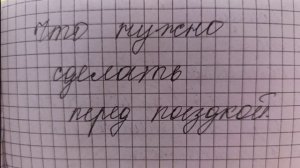 Что нужно
сделать
перед поездкой.